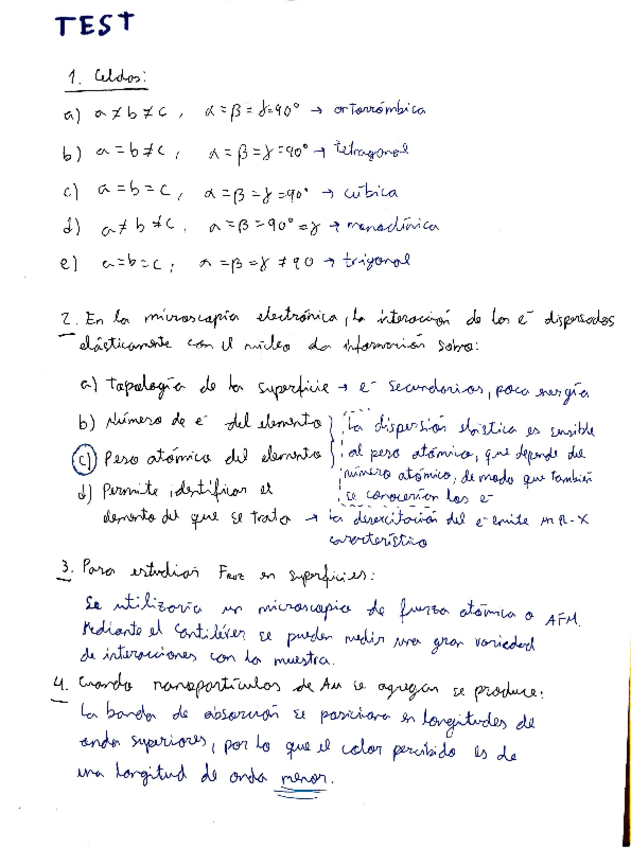 TEST
1. Celdas:
a) a ≠ b ≠ c, α = β = γ = 90° → ortorrómbica
b) a = b ≠ c, α = β = γ = 90° → tetragonal
c) a = b = c, α = β = γ = 90° → cúbica
d) a ≠ b ≠ c, α = β = 90° = γ → monoclínica
e) a = b = c, α = β = γ ≠ 90 → trigonal
2. En la microscopía electrónica, la interacción de los e⁻ dispersados
elásticamente con el núcleo da información sobre:
a) Topología de la superficie → e⁻ secundarios, poca energía
b) Número de e⁻ del elemento
c) Peso atómico del elemento
La dispersión elástica es sensible
al peso atómico, que depende del
número atómico, de modo que también
se conocerían los e⁻
d) Permite identificar el
elemento del que se trata → la desexcitación del e⁻ emite un R-X
característico
3. Para estudiar Froz en superficies:
Se utilizaría un microscopio de fuerza atómica o AFM.
Mediante el cantiléver se pueden medir una gran variedad
de interacciones con la muestra.
4. Cuando nanopartículas de Au se agregan se produce:
La banda de absorción se posiciona en longitudes de
onda superiores, por lo que el color percibido es de
una longitud de onda menor.